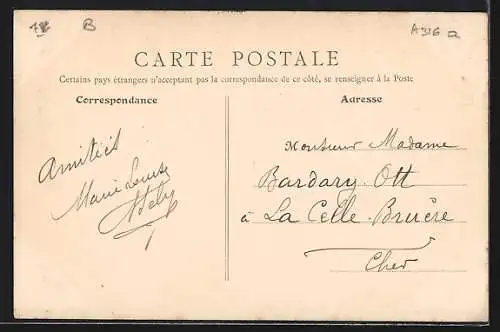 18 B A316 a
CARTE POSTALE
Certains pays étrangers n'acceptant pas la correspondance de ce côté, se renseigner à la Poste
Correspondance
Adresse
Amitiés
Marie Louise
Monsieur Madame
Bardary Ott
à La Celle-Bruère
Cher